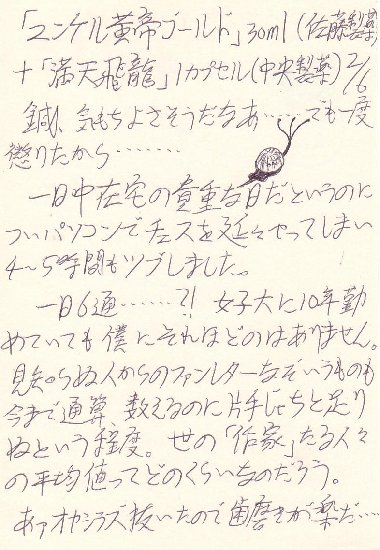 「ユンケル黄帝ゴールド」30ml(佐藤製薬)
+「満天飛龍」1カプセル(中央製薬)2/6
鍼、気もちよさそうだなあ……でも一度
懲りたから………
一日中在宅の貴重な日だというのに
ついパソコンでチェスを延々やってしまい
4〜5時間もツブしました。
一日6通……?! 女子大に10年勤
めていても僕にそれほどのはありません。
見知らぬ人からのファンレターなぞいうものも
今まで通算、数えるのに片手じゃちと足り
ぬという程度。世の「作家」たる人々
の平均値ってどのくらいなのだろう。
あァオヤシラズ抜いたので歯磨きが楽だ……